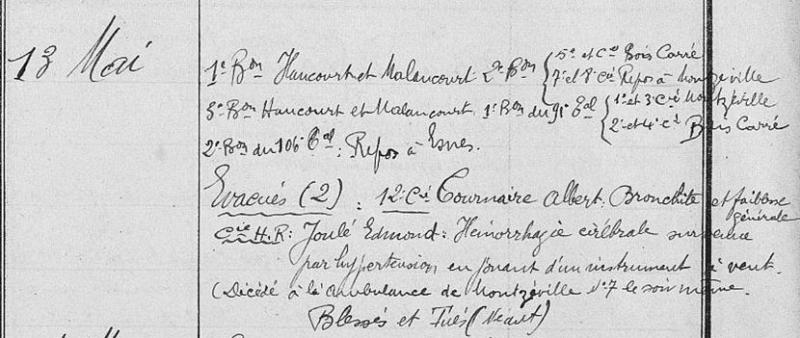 13 Mai
1e Bon Haucourt et Malancourt. 2e Bon { 5e et Cie Bois Carré
7e et 8e Cie Repos à Montzéville
3e Bon Haucourt et Malancourt. 1e Bon du 91e Eal { 1e et 3e Cie Montzéville
2e et 4e Cie Bois Carré
2e Bon du 106e Eal : Repos à Esnes.
Evacués (2) : 12e Cie Cournaire Albert. Bronchite et faiblesse générale
Cie H.R : Joulé Edmond : Hémorrhagie cérébrale survenue
par hypertension en jouant d'un instrument à vent.
(Décédé à l'ambulance de Montzéville N°7 le soir même.
Blessés et Tués (Néant)